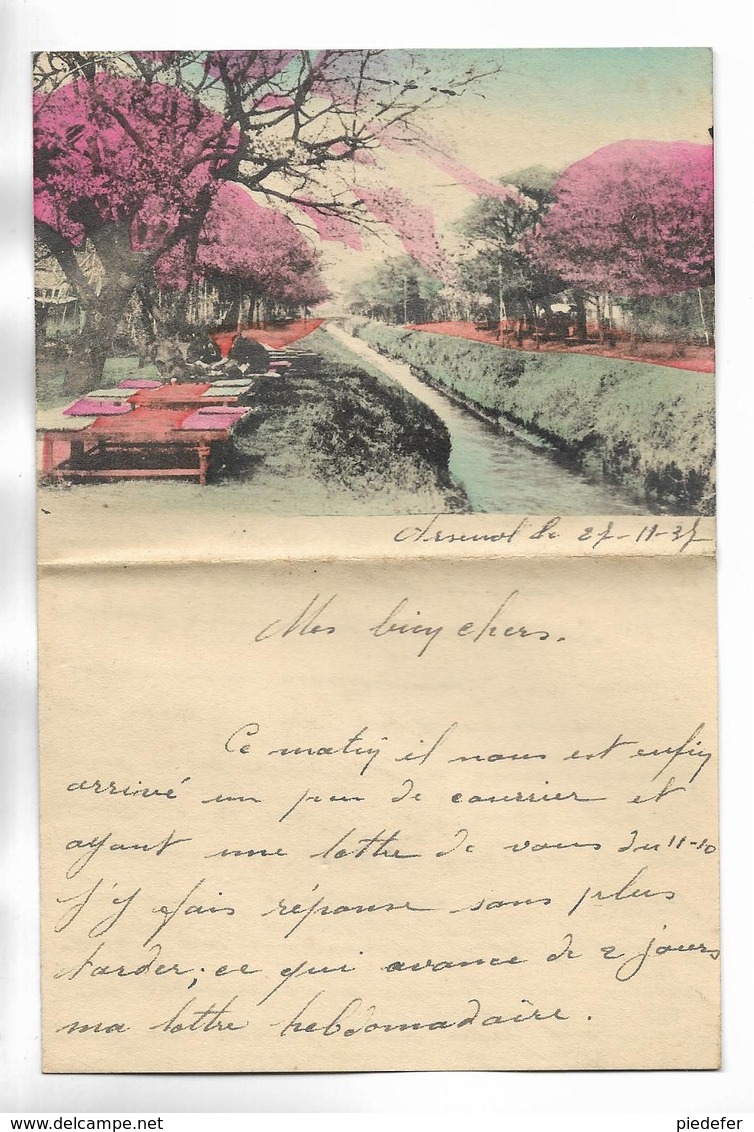 Arsenal le 27-11-37
Mes bien chers.
Ce matin il nous est enfin
arrivé un peu de courrier et
ayant une lettre de vous du 11-10
j'y fais réponse sans plus
tarder; ce qui avance de 2 jours
ma lettre hebdomadaire.
piedefer